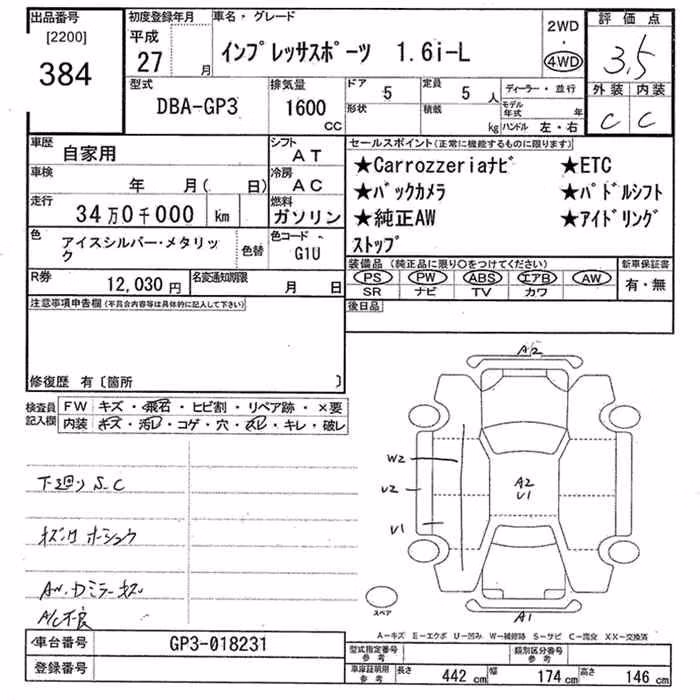 出品番号
[2200]
384
初度登録年月
平成
27 月
車名・グレード
インプレッサスポーツ 1.6i-L
2WD
・
4WD
評価点
3.5
外装 内装
C C
型式
DBA-GP3
排気量
1600
CC
ドア 5
定員 5 人
形状
積載 kg
ディーラー・並行
モデル年式 年
ハンドル 左・右
車歴
自家用
シフト
AT
車検
年 月( 日)
冷房
AC
走行
34万0千000 km
燃料
ガソリン
色
アイスシルバー・メタリック
色替
色コード
G1U
セールスポイント(正常に機能するものに限ります)
★Carrozzeriaナビ ★ETC
★バックカメラ ★パドルシフト
★純正AW ★アイドリング
ストップ
装備品 (純正品に限り○をつけてください)
PS PW ABS エアB AW
SR ナビ TV カワ
新車保証書
有・無
R券
12,030 円
名変通知期限
月 日
後日品
注意事項申告欄(不具合内容等は具体的に記入して下さい)
修復歴 有〔箇所 〕
検査員
記入欄
FW キズ・飛石・ヒビ割・リペア跡・×要
内装 キズ・汚レ・コゲ・穴・スレ・キレ・破レ
下廻り S.C
A/C不良
A2
W2
U2
U1
A2
U1
A1
スペア
A-キズ E-エクボ U-凹み W-補修跡 S-サビ C-腐食 XX-交換済
車台番号
GP3-018231
登録番号
型式指定番号
参考
類別区分番号
参考
車庫証明用
参考
長さ 442 cm
幅 174 cm
高さ 146 cm